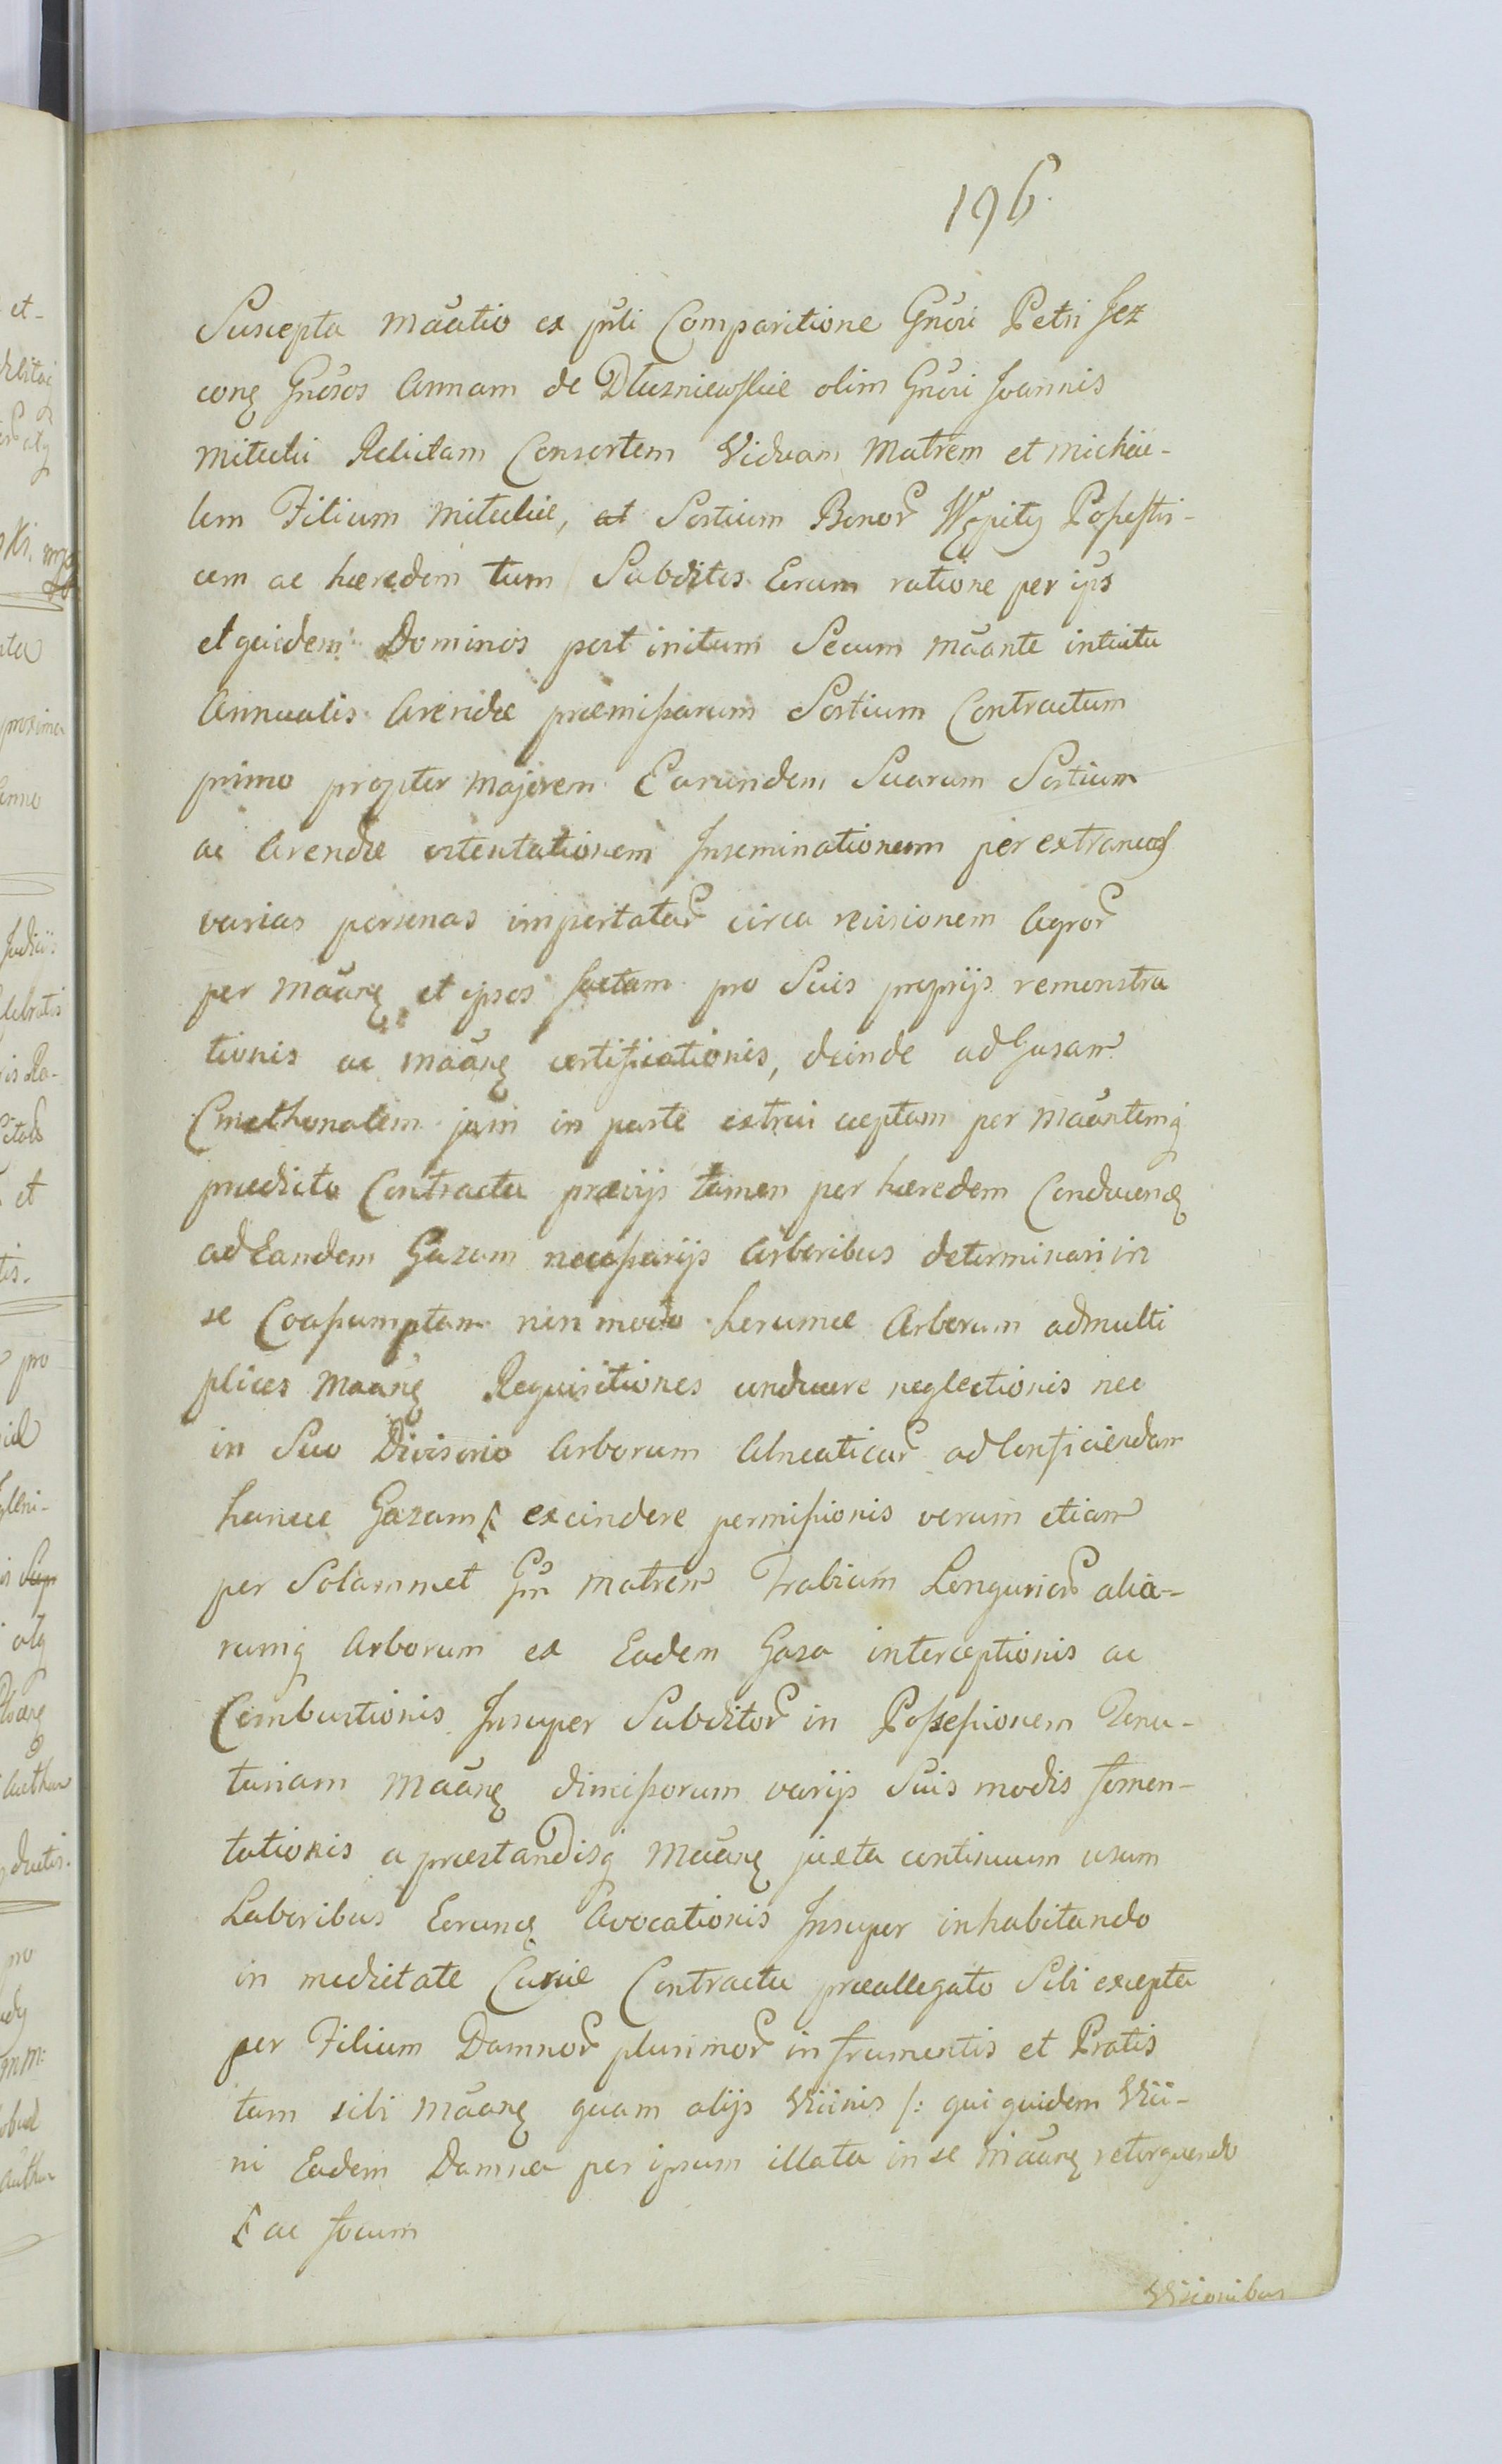 196.
Suscepta Mãatio ex pñti Comparitione Gnõri Petri Jez
conq Gnõsos Annam de Dłuzniewskie olim Gnõri Joannis
Mitecki Relictam Consortem Viduam Matrem et Michae-
lem Filium Miteckie, at Sortium Bonor Possestri-
cem ac hæredem tum Subditos Eorum ratione per ips
et quidem Dominos post initum Secum Mãante intuitu
Annualis Arendæ præmissarum Sortium Contractum
primo propter Majorem Earundem Suarum Sortium
ac Arendæ ostentationem Inseminationum per extraneas
varias personas impertatar circa revisionem Agror
per Mãanq et ipsos factam pro Suis proprijs remonstra
tionis ac Mãanq certificationis, deinde ad Gazam
Cmethonalem jam in parte extrui ceptam per Mãantemq
prædicto Contractu prævijs tamen per hæredem Conducenq
ad Eandem Gazam necessarijs Arboribus determinari in
se Coassumptam non modo harumce Arborum ad multi
plices Mãanq Requisitiones conducere neglectionis nec
in Suo Divisorio Arborum Alneaticar ad Conficiendam
hancce Gazam excindere permissionis verum etiam
per Solammet Matrem Trabium Longurior alia-
rumq Arborum ex Eadem Gaza interceptionis ac
Combustionis Insuper Subditor in Possessionem Tenu-
tariam Mãanq dimissorum varijs Suis modis fomen-
tationis a præstandisq Mãanq juxta continuum usum
Laboribus Eorunq Avocationis Insuper inhabitando
in medietate Curiæ Contractu præallegato Sibi excepta
per Filium Damnor plurimor in frumentis et Pratis
tam sibi Mãanq quam alijs Viinis /: qui quidem Vici-
ni Eadem Damna per ipsum illata in se Mãanq retorquendo
ac focum
Visionibus